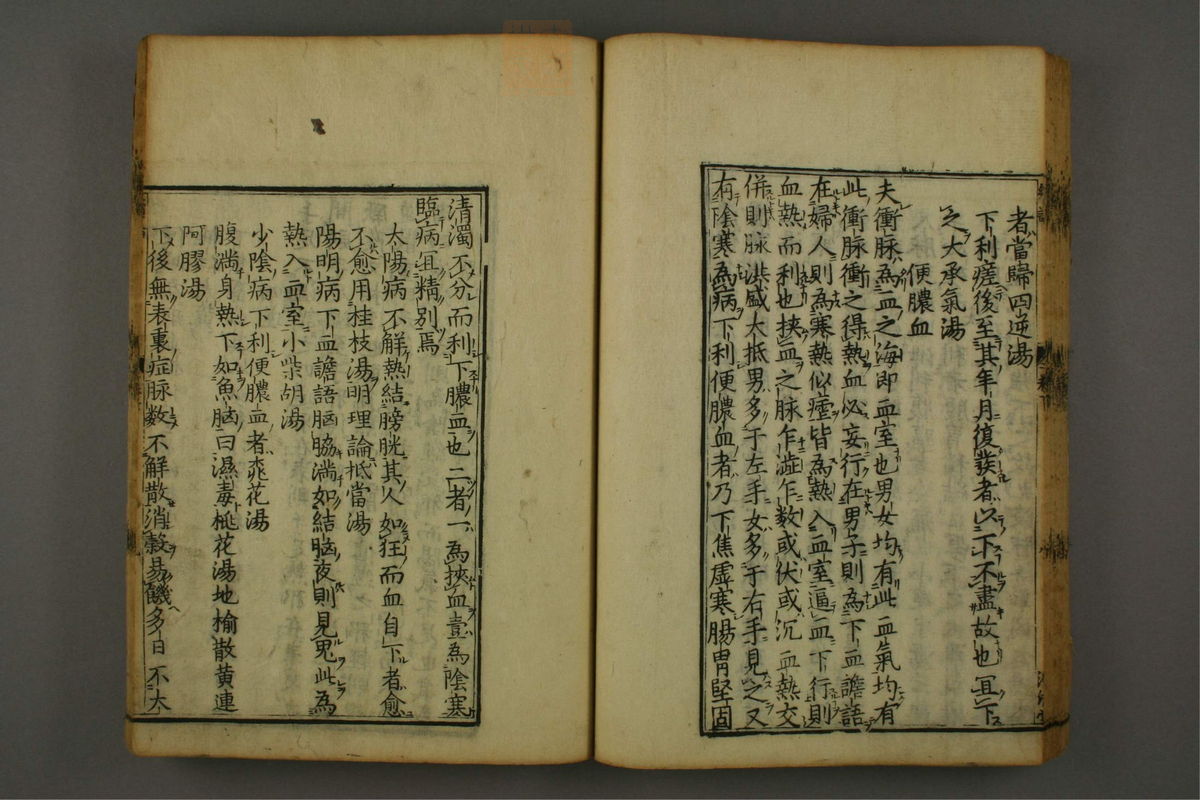 者當歸四逆湯
下利瘥後至其年月復發者以下不盡故也宜下
之大承氣湯
便膿血
夫衝脉為血之海即血室也男女均有此血氣均有
此衝脉衝之得熱血必妄行在男子則為下血譫語
在婦人則為寒熱似瘧皆為熱入血室逼血下行則
血熱而利也挾血之脉乍澁乍数或伏或沉血熱交
併則脉洪盛大抵男多于左手女多于右手見之又
有陰寒為病下利便膿血者乃下焦虛寒腸胃堅固
清濁不分而利下膿血也二者一為挾血壹為陰寒
臨病宜精別焉
太陽病不解熱結膀胱其人如狂而血自下者愈
不愈用桂枝湯明理論抵當湯
陽明病下血譫語脑脇満如結脑夜則見鬼此為
熱入血室小柴胡湯
少陰病下利便膿血者桃花湯
腹満身熱下如魚脑曰濕毒桃花湯地榆散黄連
阿膠湯
下後無表裏症脉数不解散消穀易饑多日不大